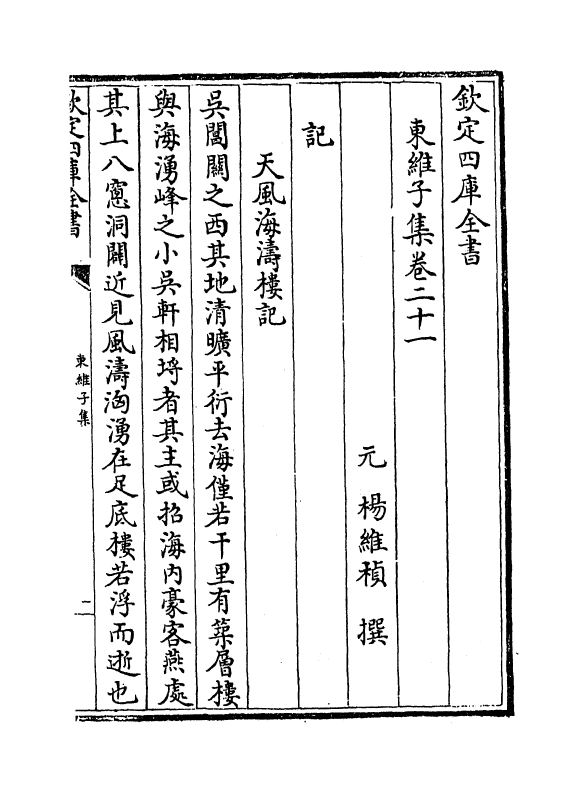 欽定四庫全書
東維子集卷二十一
元 楊維楨 撰
記
天風海濤樓記
吳閶關之西其地清曠平衍去海僅若干里有築層樓
與海湧峰之小吳軒相埒者其主或招海内豪客燕處
其上八窻洞闢近見風濤洶湧在足底樓若浮而逝也
欽定四庫全書
東維子集
二